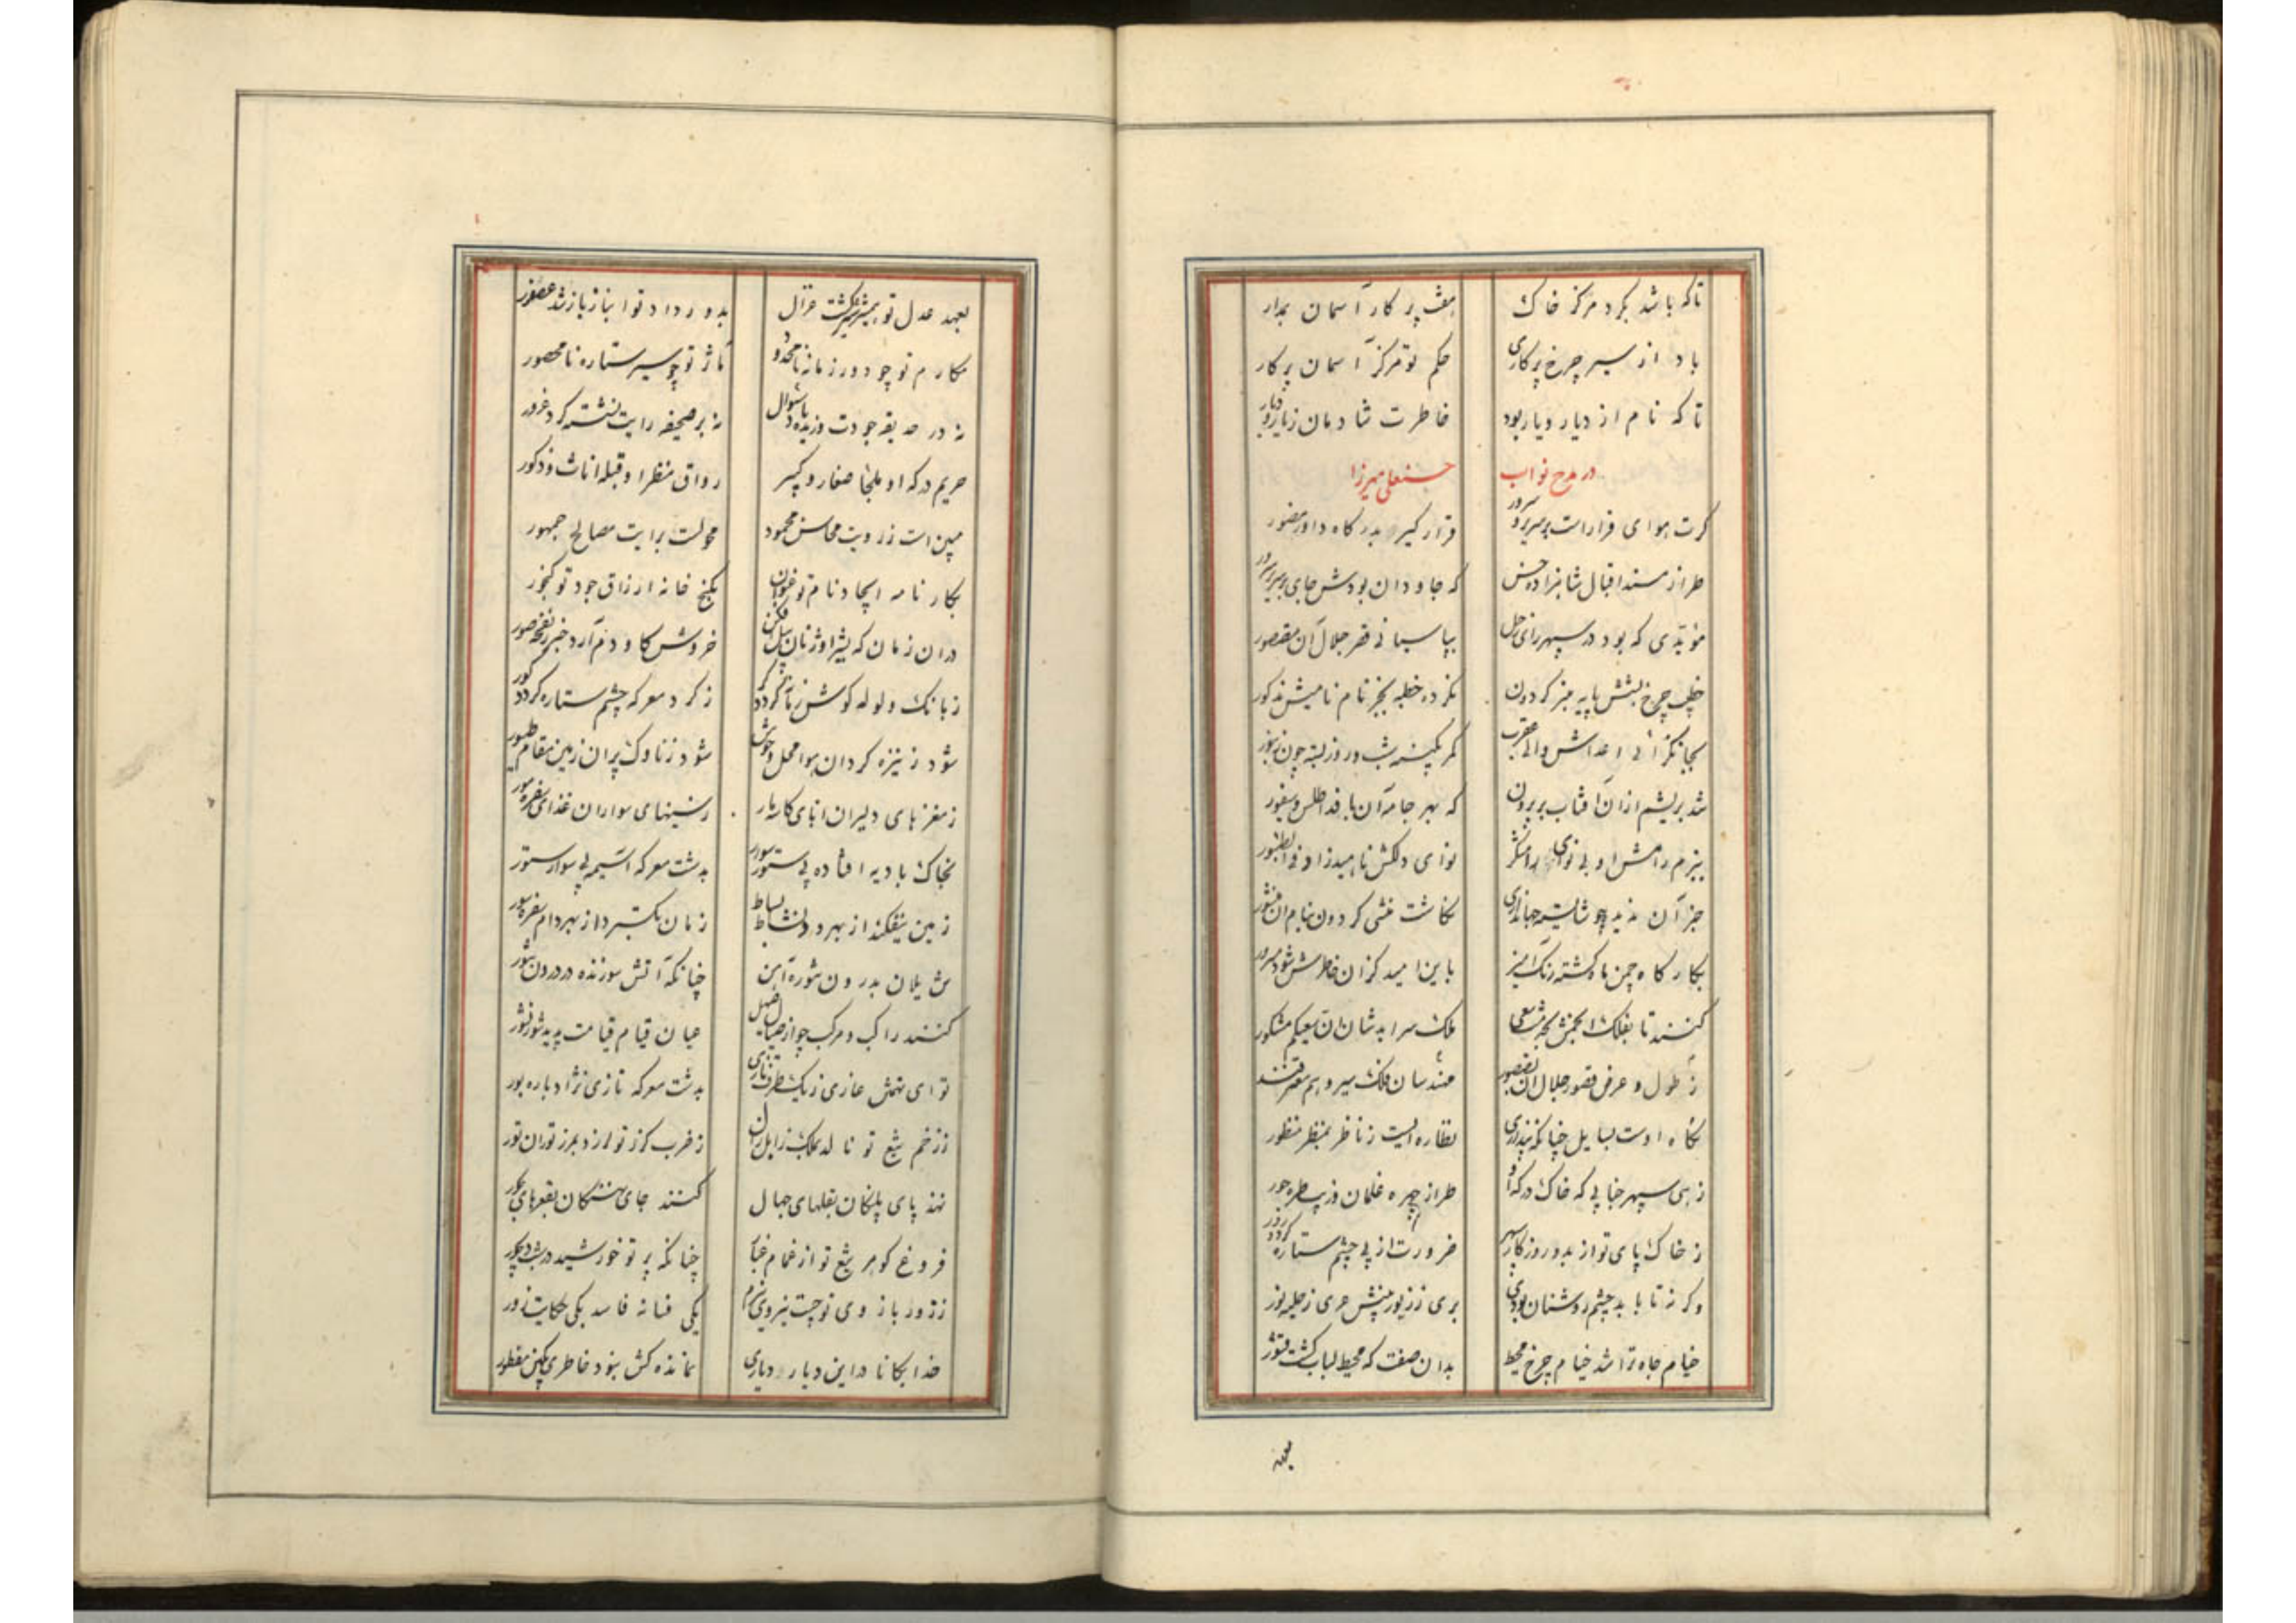 تا که باشد بگرد مرکز خاک هفت پرکار آسمان بمدار
باد از سیر چرخ پرکاری حکم تو مرکز آسمان پرکار
تا که نام از دیار و یار بود خاطرت شادمان ز یار و دیار
در مدح نواب حسنعلی میرزا
گرت هوای قرار است بر سریر سرور قرار گیر بدرگاه داور منصور
طراز مسند اقبال شاهزاده حسن که جاودان بودش جای بر سریر سرور
مؤیدی که بود در سپهر رای زحل بپاسبانی قصر جلال آن مقصور
خطیب چرخ نهش پایه منبر گردون نکرده خطبه بجز نام نامیش مذکور
بجانگزائی اعداش والی عقرب کمر بکینه شب و روز بسته چون زنبور
شد بریشم از آن آفتاب بر گردون که بهر جامه آن بافد اطلس و سیفور
ببزم رامش او بی نوای رامشگر نوای دلکش ناهید زاد فی الطنبور
جز آن ندید چو شایسته جهانداری نگاشت منشی گردون بنام آن منشور
بکارگاه چمن باد گشته رنگ آمیز باین امید کزان خاطرش شود مسرور
کنند تا بفلک انجمنش بجد سعی ملک سراید شان ان سعیکم مشکور
ز طول و عرض قصور جلال آن بقصور مهندسان فلک سیر و هم معترفند
نگاه اوست بسایل چنانکه پنداری نظاره ایست ز ناظر بمنظر منظور
زهی سپهر جنابی که خاک درگه او طراز چهره غلمان و زیب طره حور
ز خاک پای تو از بدو روزگار سپهر ضرورت از پی چشم ستاره کرد ذرور
وگرنه تا بابد چشم روشنان بودی بری ز زیور بینش عری ز حلیه نور
خیام جاه ترا شد خیام چرخ محیط بدان صفت که محیط لباب گشت قشور
بعهد
بعهد عدل تو همشیر شیر گشت غزال بدور داد تو انباز باز شد عصفور
مکارم تو چو دور زمانه نامحدود مآثر تو چو سیر ستاره نامحصور
نه در حدیقه جودت وزیده باد سئوال نه بر صحیفه رایت نشسته گرد غرور
حریم درگه او ملجا صغار و کبیر رواق منظر او قبله اناث و ذکور
مبین است ز رویت محاسن محمود محولست برایت مصالح جمهور
بکارنامه ایجاد نام تو عنوان بگنج خانه ارزاق جود تو گنجور
در آن زمان که بشیر اوژنان پیل فکن خروش گاو دم آرد خبر ز نفخه صور
ز بانک ولوله گوش زمانه گردد کر ز گرد معرکه چشم ستاره گردد کور
شود ز نیزه گردان هوا محل وحوش شود ز ناوک پران زمین مقام طیور
ز مغزهای دلیران انای کاسه مار ز سینهای سواران غذای سفره مور
بخاک بادیه افتاده بی ستور سوار بدشت معرکه آسیمه بی سوار ستور
زمین بیفکند از بهر دد نشاط بساط زمان بگسترد از بهر دام سفره سور
یلان بدرون شوره آهن چنانکه آتش سوزنده در درون تنور
کنند راکب و مرکب چو از صیاح و صهیل عیان قیام قیامت پدید شور نشور
تو ای تهمتن غازی ز یک طرف تازی بدشت معرکه تازی نژاد باره بور
ز زخم تیغ تو نالد بملک زابل زال ز ضرب گرز تو لرزد بمرز توران تور
نهند پای پلنگان بقلهای جبال کنند جای نهنگان بقعرهای بحور
فروغ گوهر تیغ تو از غمام غبار چنانکه پرتو خورشید در شب دیجور
ز زور بازوی تو چیست نیروی رستم یکی فسانه فاسد یکی حکایت زور
خدایگانا در این دیار دیاری نمانده کش نبود خاطری بکین مفطور